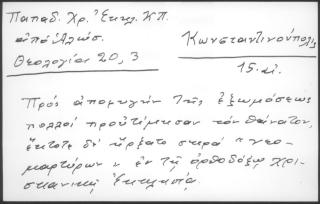 Παπαδ. Χρ. Ἐκκλ. Κ.Π.
ἀπό Ἁλώσ.
Θεολογία 20, 3
Κωνσταντινούπολις
15. αἰ.
Πρός ἀποφυγήν τῆς ἐξωμόσεως
πολλοί προὐτίμησαν τόν θάνατον,
ἔκτοτε δέ ἤρξατο σειρά "νεο-
μαρτύρων" ἐν τῇ ὀρθοδόξῳ χρι-
στιανικῇ Ἐκκλησίᾳ.